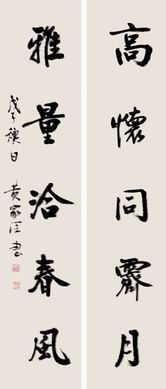 高懷同霽月
雅量洽春風
戊子穰日
黃家
書